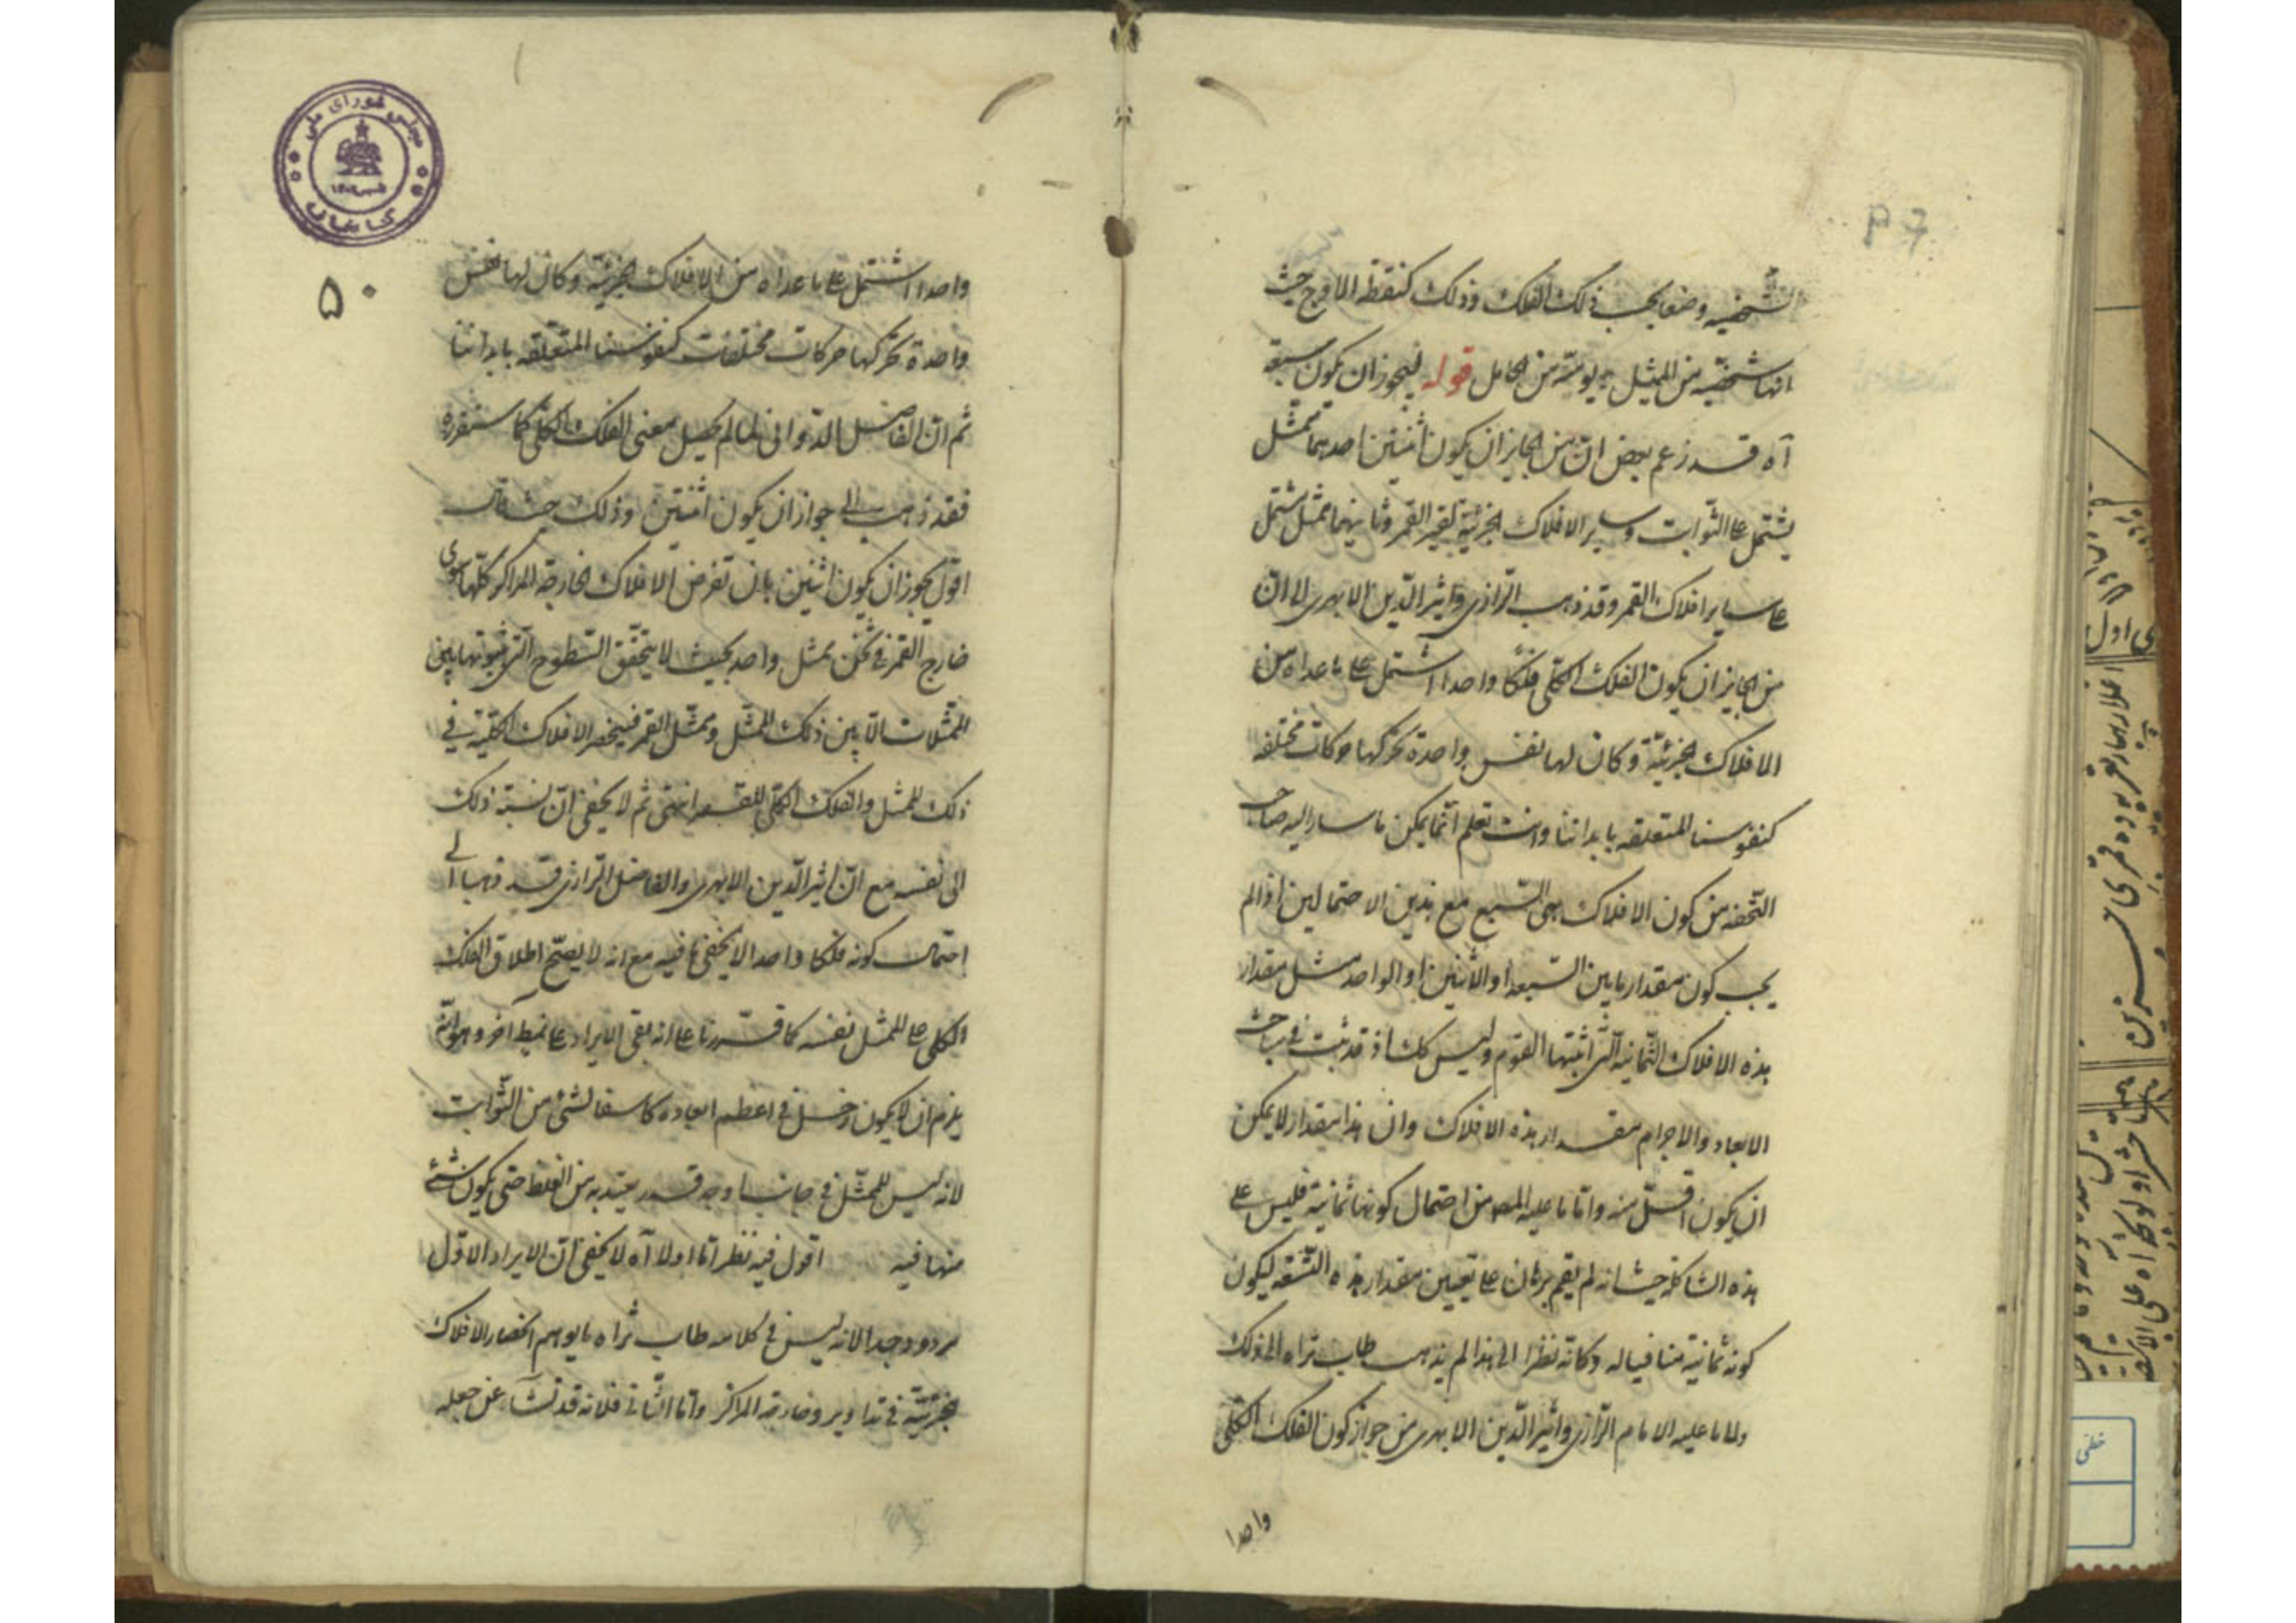 الشخصيه وضعا بحسب ذلك الفلك وذلك كنقطه الاوج حيث
انها شخصيّه من الممثل نوعيّة من الحامل قوله فيجوز ان يكون سبعة
آه قد زعم بعض انّ من الجايز ان يكون اثنين احدهما ممثّل
يشتمل على الثوابت وساير الافلاك الجزئيّة لغير القمر وثانيهما ممثل يشتمل
على ساير افلاك القمر وقد ذهب الرّازى واثير الدّين الابهرى الى انّ
من الجايز ان يكون الفلك الكلّى فلكا واحدا اشتمل على ما عداه من
الافلاك الجزئيّة وكان لها نفس واحدة تحركها حركات مختلفه
كنفوسنا المتعلقه بابداننا وانت تعلم انّما يمكن ما سار اليه صاحب
التّحفه من كون الافلاك هى السّبع مع هذين الاحتمالين اذا لم
يجب كون مقدار ما بين السّبعه او الاثنين او الواحد مثل مقدار
هذه الافلاك الثّمانيه الّتى اثبتها القوم وليس كك اذ قد ثبت فى مباحث
الابعاد والاجرام مقدار هذه الافلاك وان هذا مقدار لا يمكن
ان يكون اقلّ منه وامّا ما عليه المص من احتمال كونها ثمانية فليس على
هذه الشاكلة حيث انه لم يقم برهان على تعيين مقدار هذه التّسعه ليكون
كونه ثمانية منافيا له وكانّه نظرا الى هذا لم يذهب طاب ثراه الى ذلك
ولا ما عليه الامام الرّازى واثير الدّين الابهرى من جواز كون الفلك الكلّى
واحدا
۵۰
واحدا اشتمل على ما عداه من الافلاك الجزئيّة وكان لها نفس
واحدة تحركها حركات مختلفات كنفوسنا المتعلّقه بابداننا
ثم انّ الفاضل الدّوانى لما لم يحصل معنى الفلك الكلّى كما ستقرره
فقد ذهب الى جواز ان يكون اثنتين وذلك حيث قال
اقول يجوز ان يكون اثنين بان تفرض الافلاك الخارجة المراكز كلّها سوى
خارج القمر فى ثخن ممثل واحد بحيث لا يتحقّق السّطوح الّتى يثبوتها بين
الممثّلات الّا بين ذلك الممثّل وممثّل القمر فينحصر الافلاك الكليّة فى
ذلك الممثل والفلك الكلّى للقمر انتهى ثم لا يخفى انّ نسبة ذلك
الى نفسه مع انّ اثير الدّين الابهرى والفاضل الرّازى قد ذهبا الى
احتمال كونه فلكا واحدا لا يخفى ما فيه مع انه لا يصحّ اطلاق الفلك
الكلى على الممثل نفسه كما قرّرنا على انه بقى الايراد على نمط آخر وهو انّه
يلزم ان لا يكون زحل فى اعظم ابعاده كاسفا لشئ من الثّوابت
لانه ليس للممثّل فى جانب اوجه قدر يعتد به من الغلظ حتى يكون شئ
منها فيه اقول فيه نظر امّا اولا آه لا يخفى انّ الايراد الاوّل
مردود جدا لانه ليس فى كلامه طاب ثراه ما يوهم انحصار الافلاك
الجزئيّة فى تداوير وخارجة المراكز وامّا الثّانى فلانه قد نشأ عن جعله
مجلس شورای ملی
کتابخانه
خطی